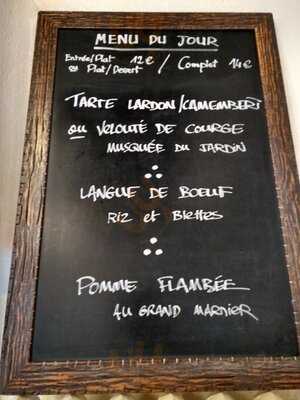 MENU DU JOUR
Entrée/Plat 12€ / Complet 14€
ou Plat/Dessert
TARTE LARDON/CAMEMBERT
ou VELOUTÉ DE COURGE
MUSQUÉE DU JARDIN
LANGUE DE BOEUF
RIZ et Blettes
POMME FLAMBÉE
AU GRAND MARNIER